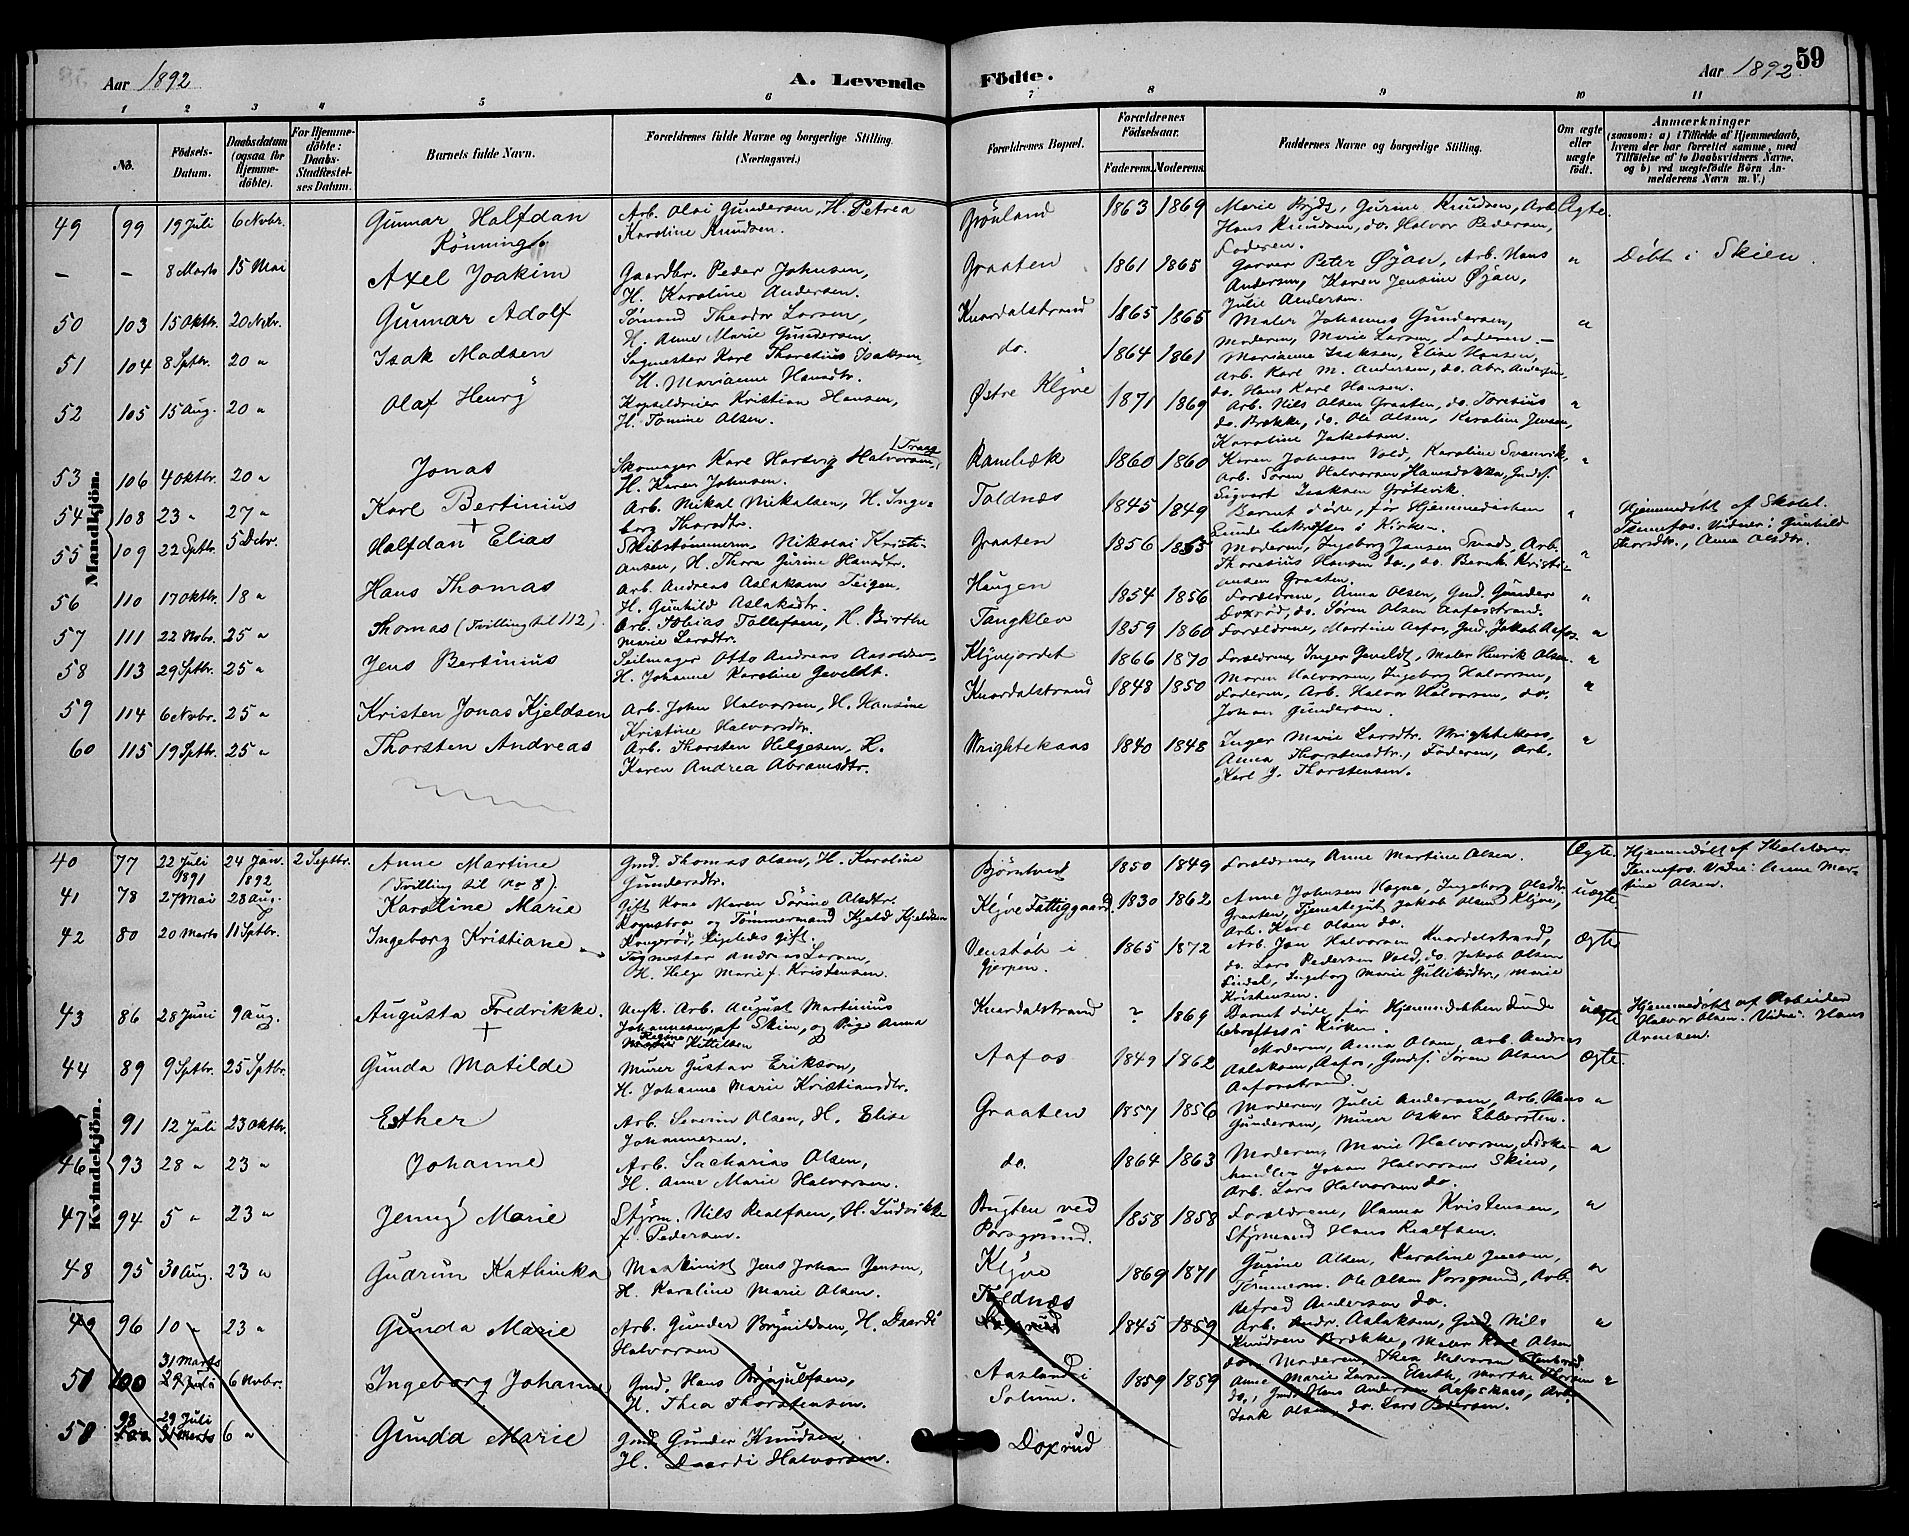 Aar 1892
A. Levende
Födte.
Aar 1892.
59
1 2 3 4 5 6 7 8 9 10 11
No.
Födsels-Datum.
Daabsdatum (ogsaa for Hjemmedöbte).
For Hjemmedöbte: Daabs-Stadfæstelses Datum.
Barnets fulde Navn.
Forældrenes fulde Navne og borgerlige Stilling. (Næringsvei.)
Forældrenes Bopæl.
Forældrenes Födselsaar.
Faderens. Moderens.
Faddernes Navne og borgerlige Stilling.
Om ægte eller uægte födt.
Anmærkninger
(saasom: a) i Tilfælde af Hjemmedaab, hvem der har forrettet samme, med Tilföielse af to Daabsvidners Navne, og b) ved uægtefödte Börn Anmelderens Navn m. V.)
Mandkjön.
49 99 19 Juli 6 Novbr. Gunnar Halfdan Rönning
Arb. Olai Gundersen, H. Petrea
Karoline Knudsen.
Grönland 1863 1869
Hans Knudsen, do. Halvor Pedersen,
Faderen.
Ægte.
- - 8 Marts 15 Mai Axel Joakim
Gaardbr. Peder Johnsen,
H. Karoline Andersen.
Graaten 1861 1865
Garver Peter Øjan, Arb. Hans
Andersen, Karen Jensine Øjan,
Julie Andersen.
"
Döbt i Skien.
50 103 15 Oktbr. 20 Nvbr. Gunnar Adolf
Sömand Theodor Larsen,
H. Anne Marie Gundersen.
Knardalstrand 1865 1865
Maler Johannes Gundersen,
Moderen, Marie Larsen, Faderen.
"
51 104 8 Sptbr. 20 " Isak Madsen
Sagmester Karl Thoresius Isaksen,
H. Marianne Hansdtr.
do. 1864 1861
Marianne Isaksen, Elise Hansen,
Arb. Karl M. Andersen, do. Abr. Andersen,
do. Hans Karl Hansen.
52 105 15 Aug. 20 " Olaf Henry
Kristian Hansen,
H. Tomine Olsen.
Østre Klyve 1871 1869
Arb. Nils Olsen Graaten, do. Toresius
do. Brække, do. Ole Olsen, Karoline Jensen,
Karoline Jakobsen.
"
53 106 4 Oktbr. 20 " Jonas
Skomager Karl Hartvig Halvorsen,
H. Karen Johnsen.
Ramlæk 1860 1860
Karen Johnsen Vold, Karoline
Arb. Sören Halvorsen
Sigvart Isaksen Grötevik.
"
54 108 23 " 27 " Karl Bertinius +
Arb. Mikal Mikalsen, H. Inge-
borg Thorsdtr.
Toldnæs 1845 1849
Barnet döde, för Hjemmedaaben
kunde bekræftes i Kirken.
"
Hjemmedöbt af Skolel.
Tennefos. Vidner: Gunhild
Thorsdtr., Anne Olsdtr.
55 109 22 Sptbr. 5 Debr. Halfdan Elias
Skibstömmerm. Nikolai Kristi-
ansen, H. Thora Gurine Hansdtr.
Graaten 1856 1855
Moderen, Ingeborg Jansen Arb.
Thoresius Hansen do., do. Bernh. Kristi-
ansen Graaten.
"
56 110 17 Oktbr. 18 " Hans Thomas
Arb. Andreas Aslaksen Teigen,
H. Gunhild Aslaksdtr.
Haugen 1854 1856
Forældrene, Anna Olsen, Gmd. Gunder
Doxrød, do. Søren Olsen Aafosstrand.
"
57 111 22 Novbr. 25 " Thomas (Tvilling til 112).
Arb. Tobias Tollefsen, H. Birthe
Marie Larsdtr.
Tangklev 1859 1860
Forældrene, Martine Aafos, Gmd. Jakob Aafos.
"
58 113 29 Sptbr. 25 " Jens Bertinius
Seilmager Otto Andreas Aaroldsen
H. Johanne Karoline Geveldt.
Klyvejordet 1866 1870
Forældrene, Inger Geveldt, Maler Henrik Olsen.
"
59 114 6 Novbr. 25 " Kristen Jonas Kjeldsen
Arb. John Halvorsen, H. Hansine
Kristine Halvorsdtr.
Knardalstrand 1848 1850
Maren Halvorsen, Ingeborg Halvorsen,
Faderen, Arb. Halvor Halvorsen, do.
Johan Gundersen.
"
60 115 19 Sptbr. 25 " Thorsten Andreas
Arb. Thorsten Helgesen, H.
Karen Andrea Abramsdtr.
Wrightekaas 1840 1848
Inger Marie Larsdtr. Wrightekaas,
Anna Thorstensdtr., Faderen, Arb.
Karl J. Thorstensen.
"
Kvindekjön.
40 77 22 Juli 1891 24 Jan. 1892 2 Septbr. Anne Martine
(Tvilling til No 8).
Gmd. Thomas Olsen, H. Karoline
Gundersdtr.
Bjørntvedt 1850 1849
Forældrene, Anne Martine Olsen.
Ægte.
Hjemmedöbt af Skolelærer
Tennefos. Vidne: Anne Mar-
tine Olsen.
41 78 27 Mai 28 Aug. Karoline Marie
Gift Kone Maren Sörine Olsdtr.
og Tömmermand Kjeld Kjeldsen
ligeledes gift.
Klyve Fattiggaard 1830 1862
Anne Johnsen Hagne, Ingeborg Olsdtr.
Graaten, Tjenestegut Jakob Olsen Klyve,
Arb. Karl Olsen do.
uægte.
42 80 20 Marts 11 Sptbr. Ingeborg Kristiane
Andreas Larsen,
H. Helge Marie f. Kristensen.
Venstöb i Gjerpen. 1865 1872
Arb. Jan Halvorsen Knardalstrand,
do. Lars Pedersen Vold, do. Jakob Olsen
Lindal, Ingeborg Marie Gulliksdtr., Marie
Kristensen.
Ægte
43 86 28 Juni 9 Aug. Augusta Fredrikke. +
Ungk. Arb. August Martinius
Johannesen af Skien, og Pige Anna
Kittelsen
Knardalstrand ? 1869
Barnet döde, för Hjemmedaaben kunde
bekræftes i Kirken.
uægte
Hjemmedöbt af Arbeider
Halvor Olsen. Vidne: Hans
Arnesen.
44 89 9 Sptbr. 25 Sptbr. Gunda Matilde
Murer Gustav Erikson,
H. Johanne Marie Kristiansdtr.
Aafos 1849 1862
Moderen, Anna Olsen, Arb. Andreas
Aslaksen, Aafos, Gmdsf. Sören Olsen
Aafosstrand.
Ægte.
91 12 Juli 23 Oktbr. Esther
Arb. Severin Olsen, H. Elise
Johannesen.
Graaten 1857 1856
Moderen, Julie Andersen, Arb. Hans
Gundersen, Murer Oskar Ebbersten.
"
46 93 28 " 23 " Johanne
Arb. Sacharias Olsen,
H. Anne Marie Halvorsen.
do. 1864 1863
Moderen, Marie Halvorsen, Fiske-
handler Johan Halvorsen Skien,
Arb. Lars Halvorsen do.
"
47 94 5 " 23 " Jenny Marie
Styrm. Nils Realfsen, H. Ludvikke
f. Pedersen.
Bugten ved Porsgrund. 1858 1858
Forældrene, Hanna Kristensen,
Styrmand Hans Realfsen.
"
48 95 30 Aug. 23 " Gudrun Kathinka
Maskinist Jens Johan Jensen,
H. Karoline Marie Olsen.
Klyve 1869 1871
Gurine Olsen, Karoline Jensen,
Tömmerm. Ole Olsen Porsgrund, Arb.
Alfred Andersen do.
"
49 96 10 " 23 " Gunda Marie
Arb. Gunder Brynildsen, H. Daardi
Halvorsen
Toldnæs 1845 1859
Arb. Andr. Aslaksen, Gmd. Nils
Knudsen Brække, Maler Karl Olsen
"
51 100 31 Marts 6 Novbr. Ingeborg Johanne
Gmd. Hans Brynjulfsen,
H. Thea Thorstensen.
Aasland i Solum. 1859 1859
do., Moderen, Thea Halvorsen
Anne Marie Larsen
do., Gmd. Hans Andersen Aafoskaas, Arb.
Isak Olsen, do. Lars Pedersen.
"
50 98 29 Juli 6 " Gunda Marie
Gmd. Gunder Knudsen,
H. Daardi Halvorsen.
Doxrud